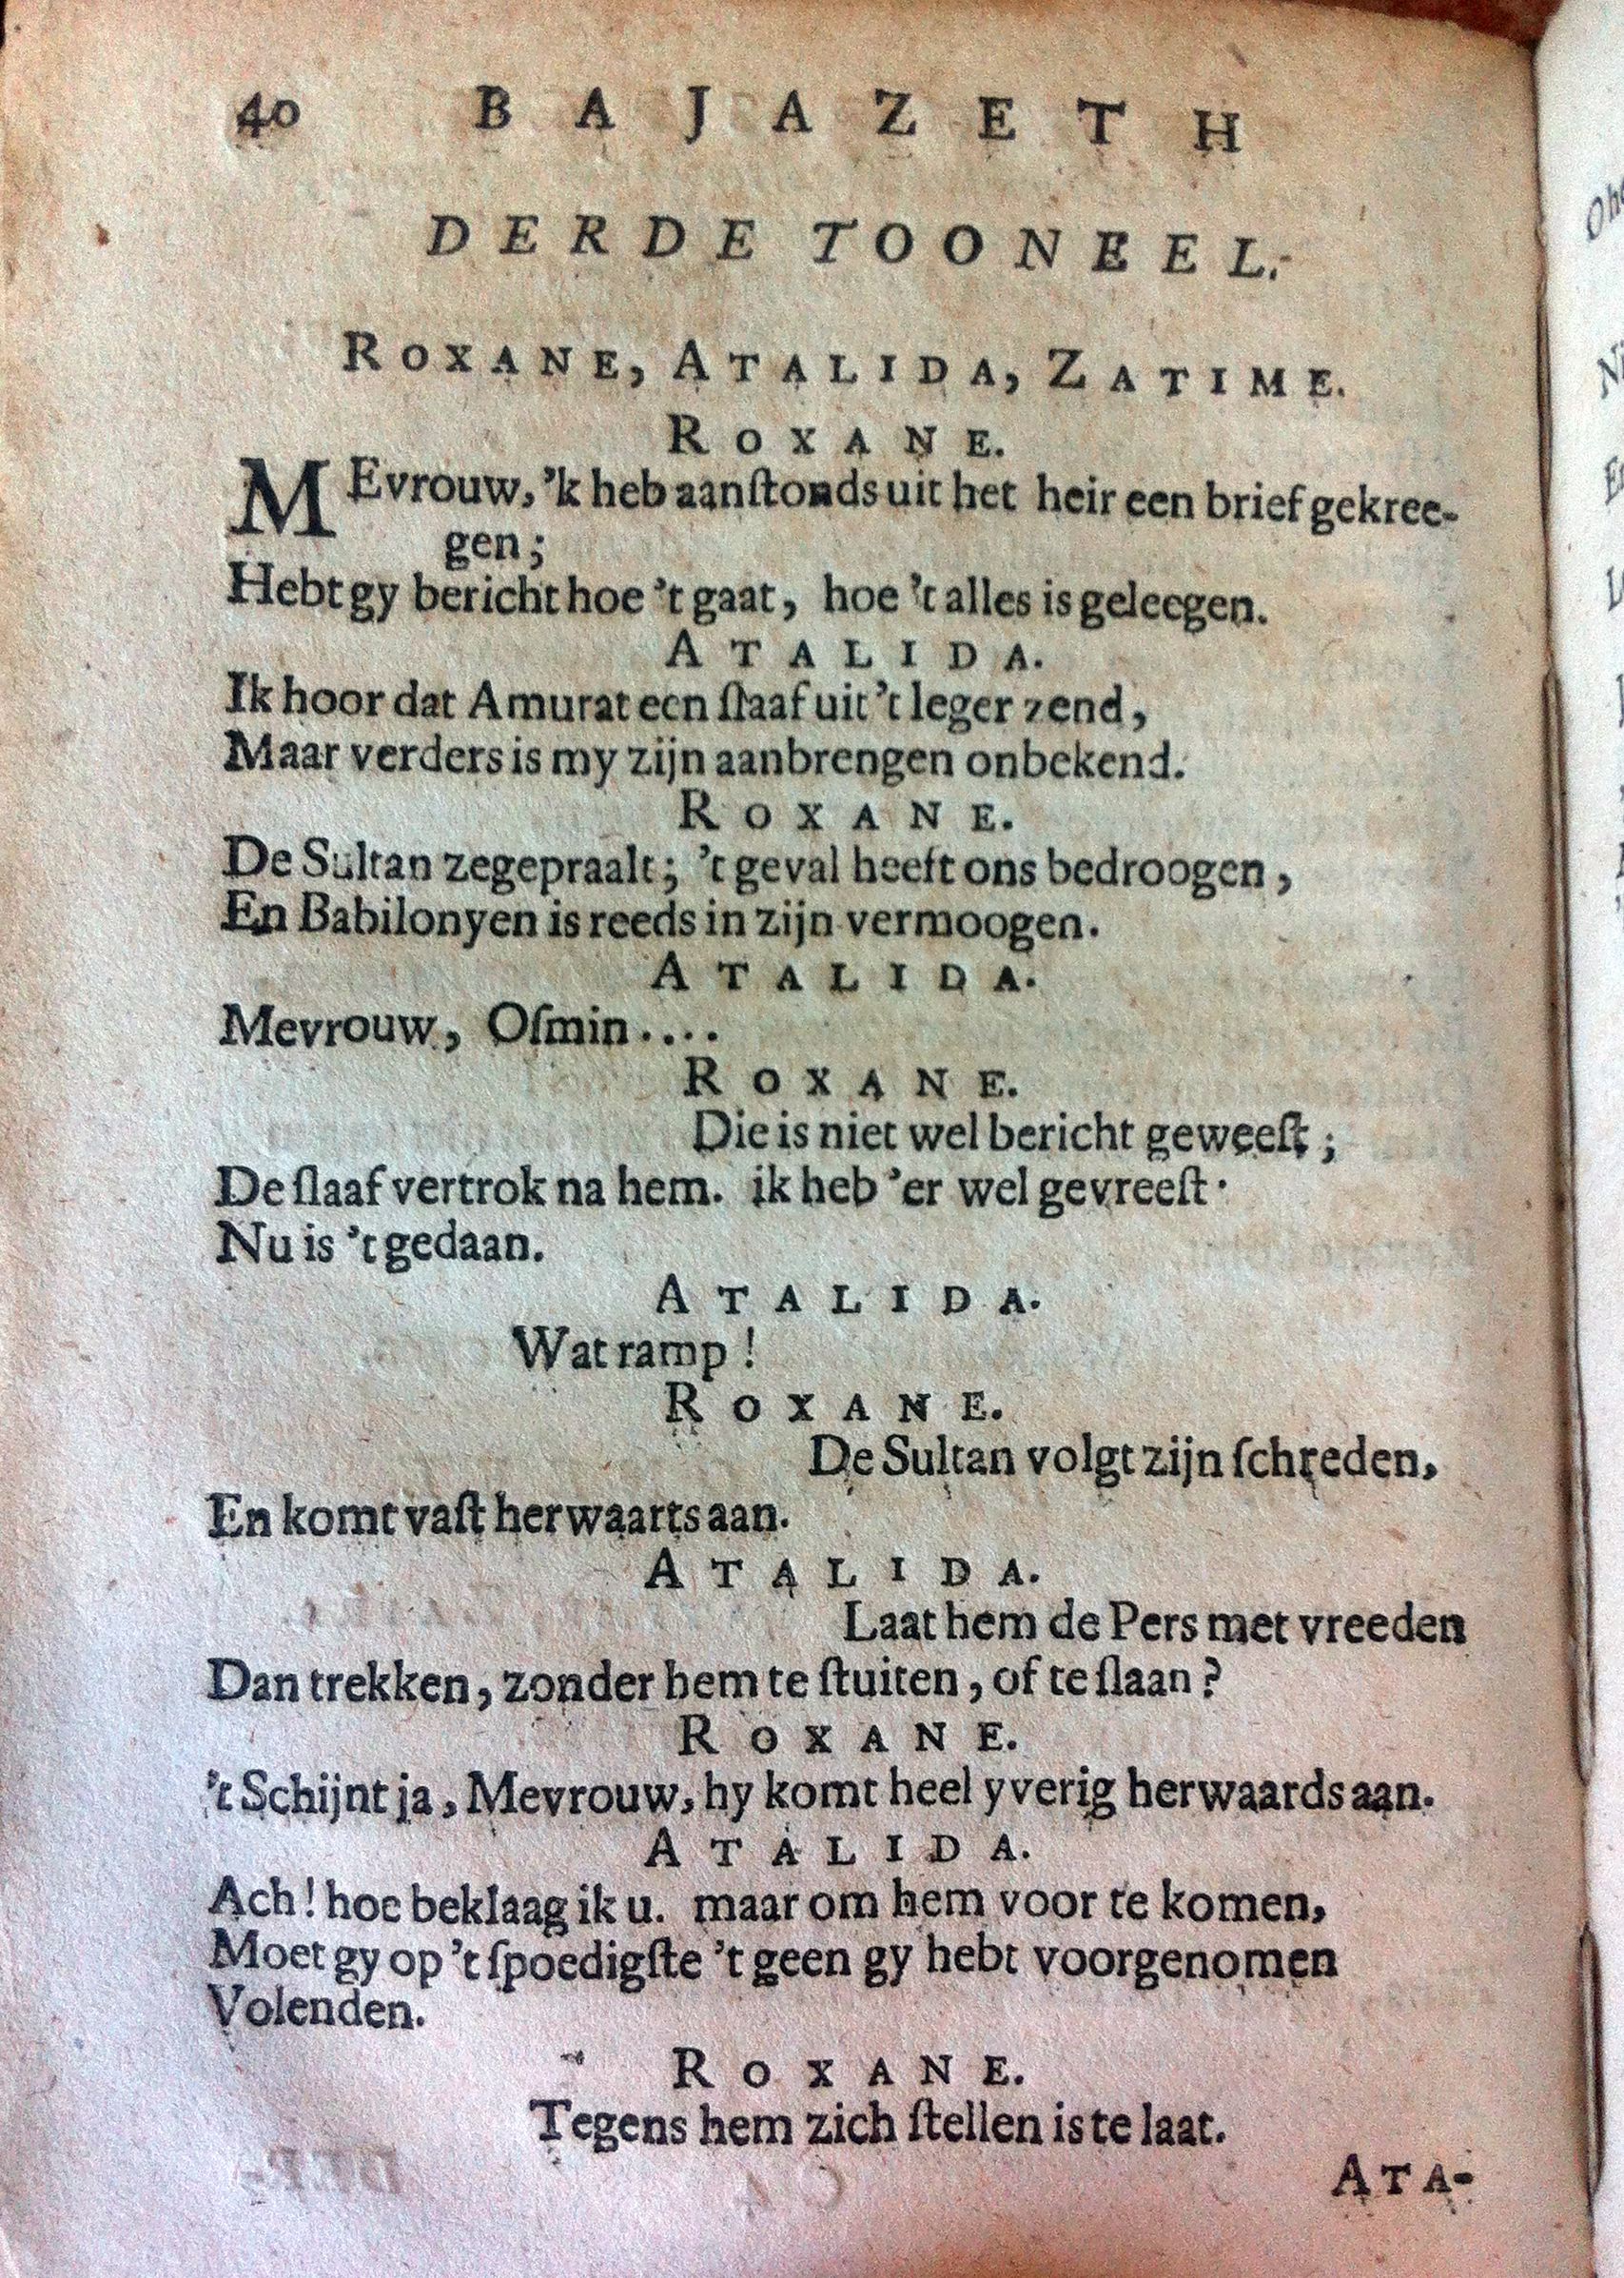 40 BAJAZETH
DERDE TOONEEL.
ROXANE, ATALIDA, ZATIME.
ROXANE.
MEvrouw, 'k heb aanſtonds uit het heir een brief gekree-
gen;
Hebt gy bericht hoe 't gaat, hoe 't alles is geleegen.
ATALIDA.
Ik hoor dat Amurat een ſlaaf uit 't leger zend,
Maar verders is my zijn aanbrengen onbekend.
ROXANE.
De Sultan zegepraalt; 't geval heeft ons bedroogen,
En Babilonyen is reeds in zijn vermoogen.
ATALIDA.
Mevrouw, Oſmin....
ROXANE.
Die is niet wel bericht geweeſt;
De ſlaaf vertrok na hem. ik heb 'er wel gevreeſt.
Nu is 't gedaan.
ATALIDA.
Wat ramp!
ROXANE.
De Sultan volgt zijn ſchreden,
En komt vaſt herwaarts aan.
ATALIDA.
Laat hem de Pers met vreeden
Dan trekken, zonder hem te ſtuiten, of te ſlaan?
ROXANE.
't Schijnt ja, Mevrouw, hy komt heel yverig herwaards aan.
ATALIDA.
Ach! hoe beklaag ik u. maar om hem voor te komen,
Moet gy op 't ſpoedigſte 't geen gy hebt voorgenomen
Volenden.
ROXANE.
Tegens hem zich ſtellen is te laat.
ATA-